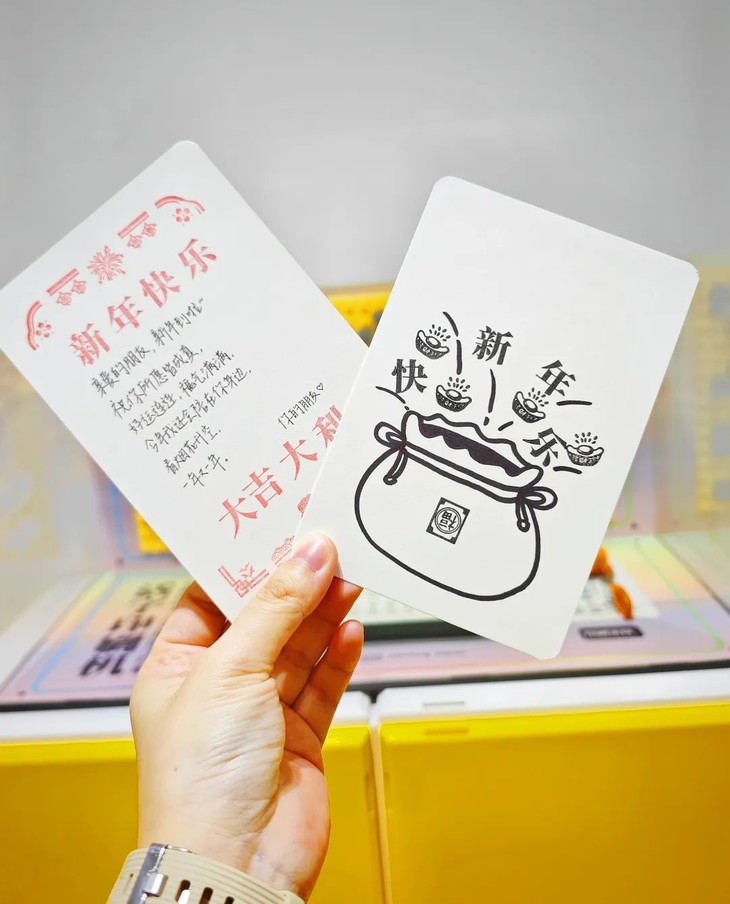 新年快乐
亲爱的朋友，新年到啦~
祝你所愿皆成真，
好运连连，福气满满。
今年我还会陪在你身边，
看烟花升空，
一年又一年。
你的朋友♡
大吉大利
新年
快乐
福